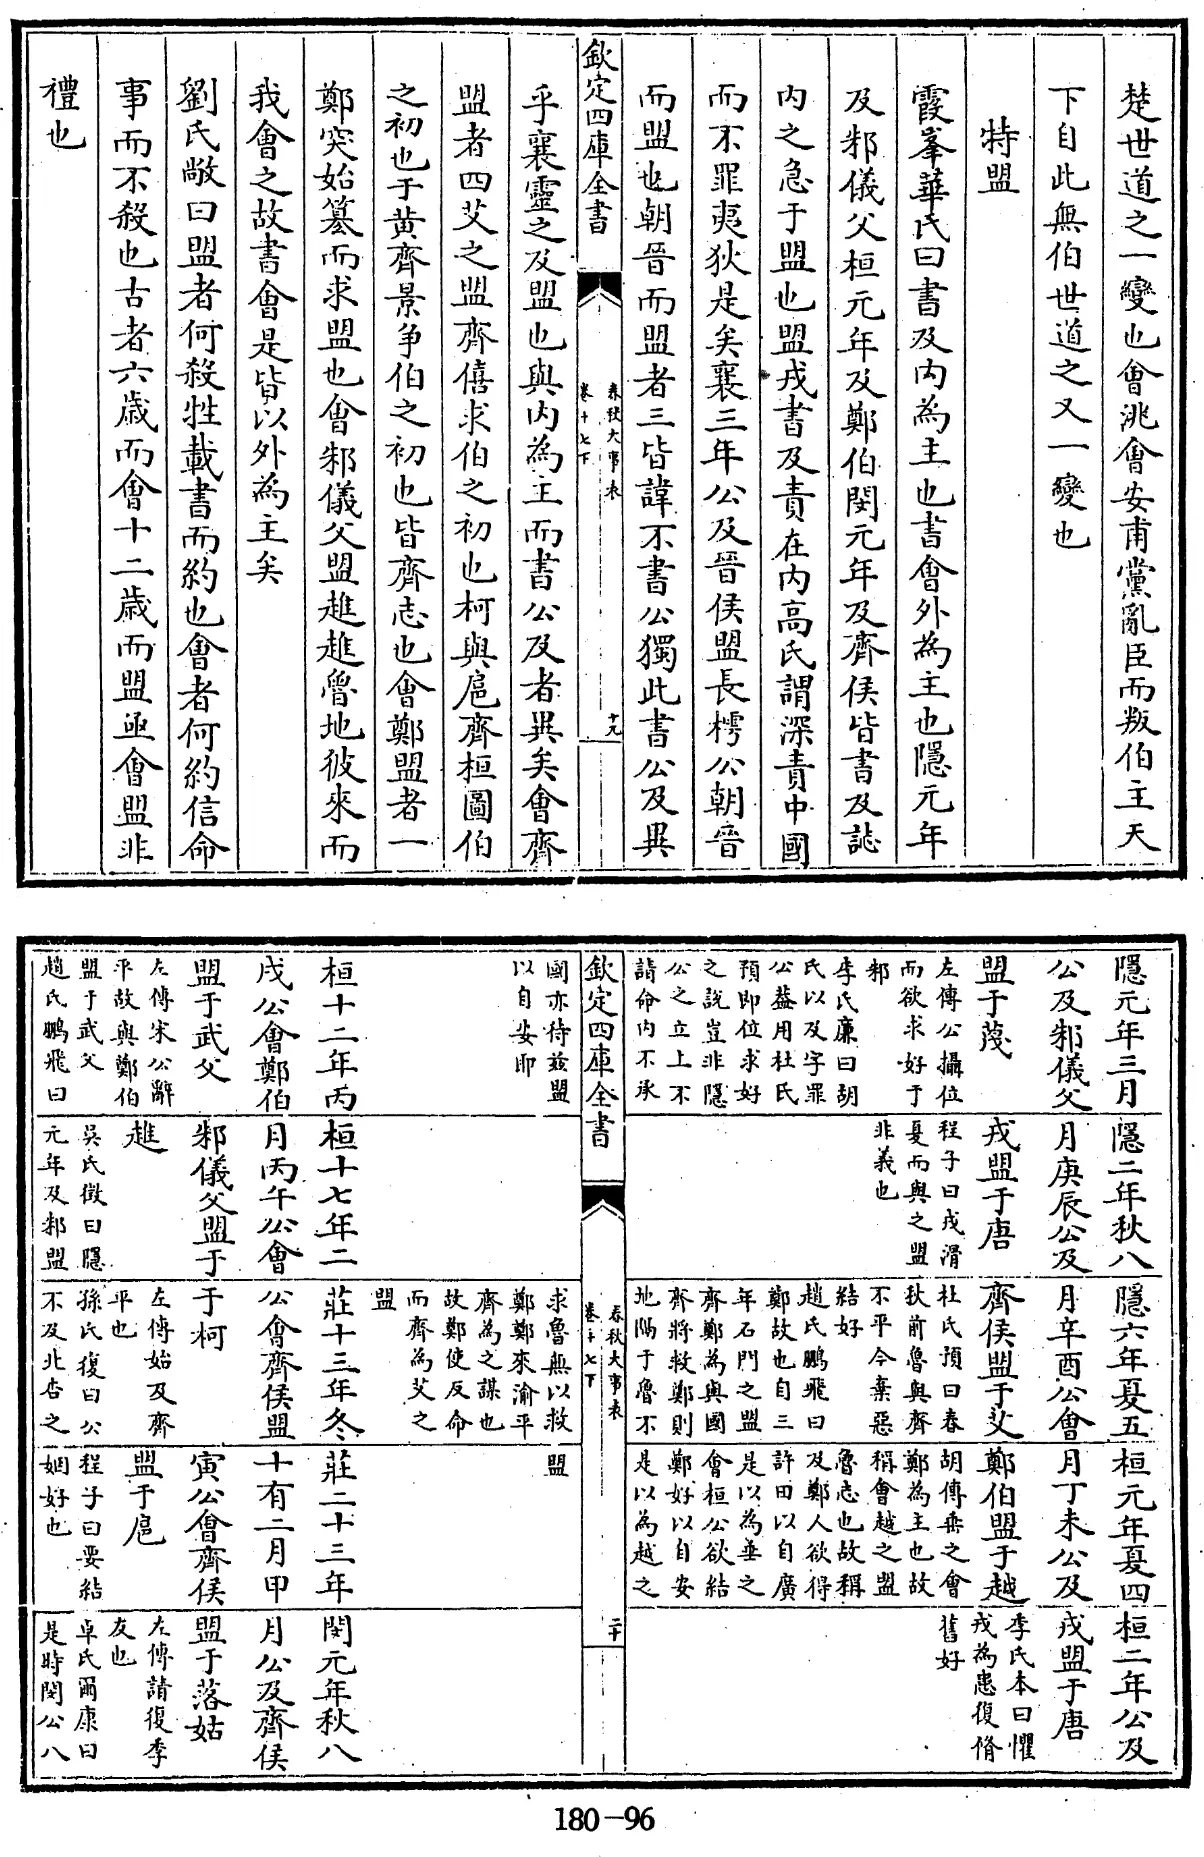 楚世道之一變也會洮會安甫黨亂臣而叛伯主天
下自此無伯世道之又一變也
特盟
霞峯華氏曰書及内為主也書會外為主也隱元年
及邾儀父桓元年及鄭伯閔元年及齊侯皆書及誌
内之急于盟也盟戎書及責在内高氏謂深責中國
而不罪夷狄是矣襄三年公及晉侯盟長樗公朝晉
而盟也朝晉而盟者三皆諱不書公獨此書公及異
欽定四庫全書
春秋大事表
卷十七下
十九
乎襄靈之及盟也與内為主而書公及者異矣會齊
盟者四艾之盟齊僖求伯之初也柯與扈齊桓圖伯
之初也于黄齊景争伯之初也皆齊志也會鄭盟者一
鄭突始簒而求盟也會邾儀父盟趡趡魯地彼來而
我會之故書會是皆以外為主矣
劉氏敞曰盟者何殺牲載書而約也會者何約信命
事而不殺也古者六歲而會十二歲而盟亟會盟非
禮也
隱元年三月
公及邾儀父
盟于蔑
左傳公攝位
而欲求好于
邾
李氏廉曰胡
氏以及字罪
公葢用杜氏
預即位求好
之説豈非隱
公之立上不
請命内不承
國亦待兹盟
以自安耶
隱二年秋八
月庚辰公及
戎盟于唐
程子曰戎滑
夏而與之盟
非義也
隱六年夏五
月辛酉公會
齊侯盟于艾
杜氏預曰春
秋前魯與齊
不平今棄惡
結好
趙氏鵬飛曰
鄭故也自三
年石門之盟
齊鄭為與國
齊將救鄭則
地隔于魯不
求魯無以救
鄭鄭來渝平
齊為之謀也
故鄭使反命
而齊為艾之
盟
桓元年夏四
月丁未公及
鄭伯盟于越
胡傳垂之會
鄭為主也故
稱會越之盟
魯志也故稱
及鄭人欲得
許田以自廣
是以為垂之
會桓公欲結
鄭好以自安
是以為越之
盟
桓二年公及
戎盟于唐
李氏本曰懼
戎為患復脩
舊好
欽定四庫全書
春秋大事表
卷十七下
二十
桓十二年丙
戌公會鄭伯
盟于武父
左傳宋公辭
平故與鄭伯
盟于武父
趙氏鵬飛曰
桓十七年二
月丙午公會
邾儀父盟于
趡
吳氏徴曰隱
元年及邾盟
莊十三年冬
公會齊侯盟
于柯
左傳始及齊
平也
孫氏復曰公
不及北杏之
莊二十三年
十有二月甲
寅公會齊侯
盟于扈
程子曰要結
姻好也
閔元年秋八
月公及齊侯
盟于落姑
左傳請復季
友也
卓氏爾康曰
是時閔公八
180-96